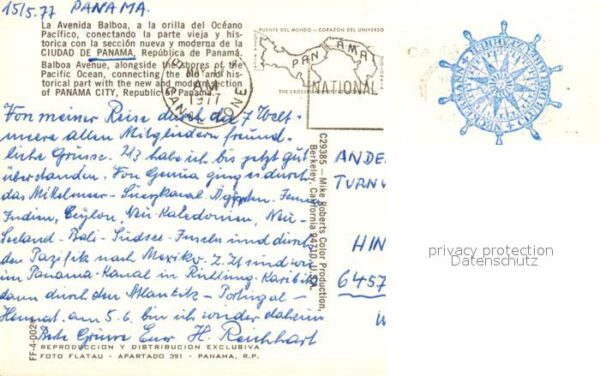 15/5.77 PANAMA.
La Avenida Balboa, a la orilla del Océano
Pacífico, conectando la parte vieja y his-
torica con la sección nueva y moderna de la
CIUDAD DE PANAMA, República de Panamá.
Balboa Avenue, alongside the shores of the
Pacific Ocean, connecting the old and his-
torical part with the new and modern section
of PANAMA CITY, Republic of Panama.
PUENTE DEL MUNDO - CORAZON DEL UNIVERSO
PANAMA
NATIONAL
AM
1977
ZONE
Von meiner Reise durch die 7 Welt-
unsere allen Mitgliedern freund-
liche Grüsse. 2/3 habe ich bis jetzt gut
überstanden. Von Genua ging es durch
das Mittelmeer - Suezkanal - Ägypten - Jemen
Indien, Ceylon, Neu Kaledonien, Neu-
Seeland - Bali - Südsee - Inseln und durch
den Pazifik nach Mexiko. Z. Zt sind wir
im Panama-Kanal in Richtung Karibik
dann durch den Atlantik - Portugal -
Heimat. am 5.6. bin ich wieder daheim
Gute Grüsse Euer H. Reichhart
C29385 - Mike Roberts Color Production,
Berkeley, California 94710 U.S.A.
FF-4-002
REPRODUCCION Y DISTRIBUCION EXCLUSIVA
FOTO FLATAU - APARTADO 391 - PANAMA, R.P.
AND
TURN
HIN
6457
privacy protection
Datenschutz